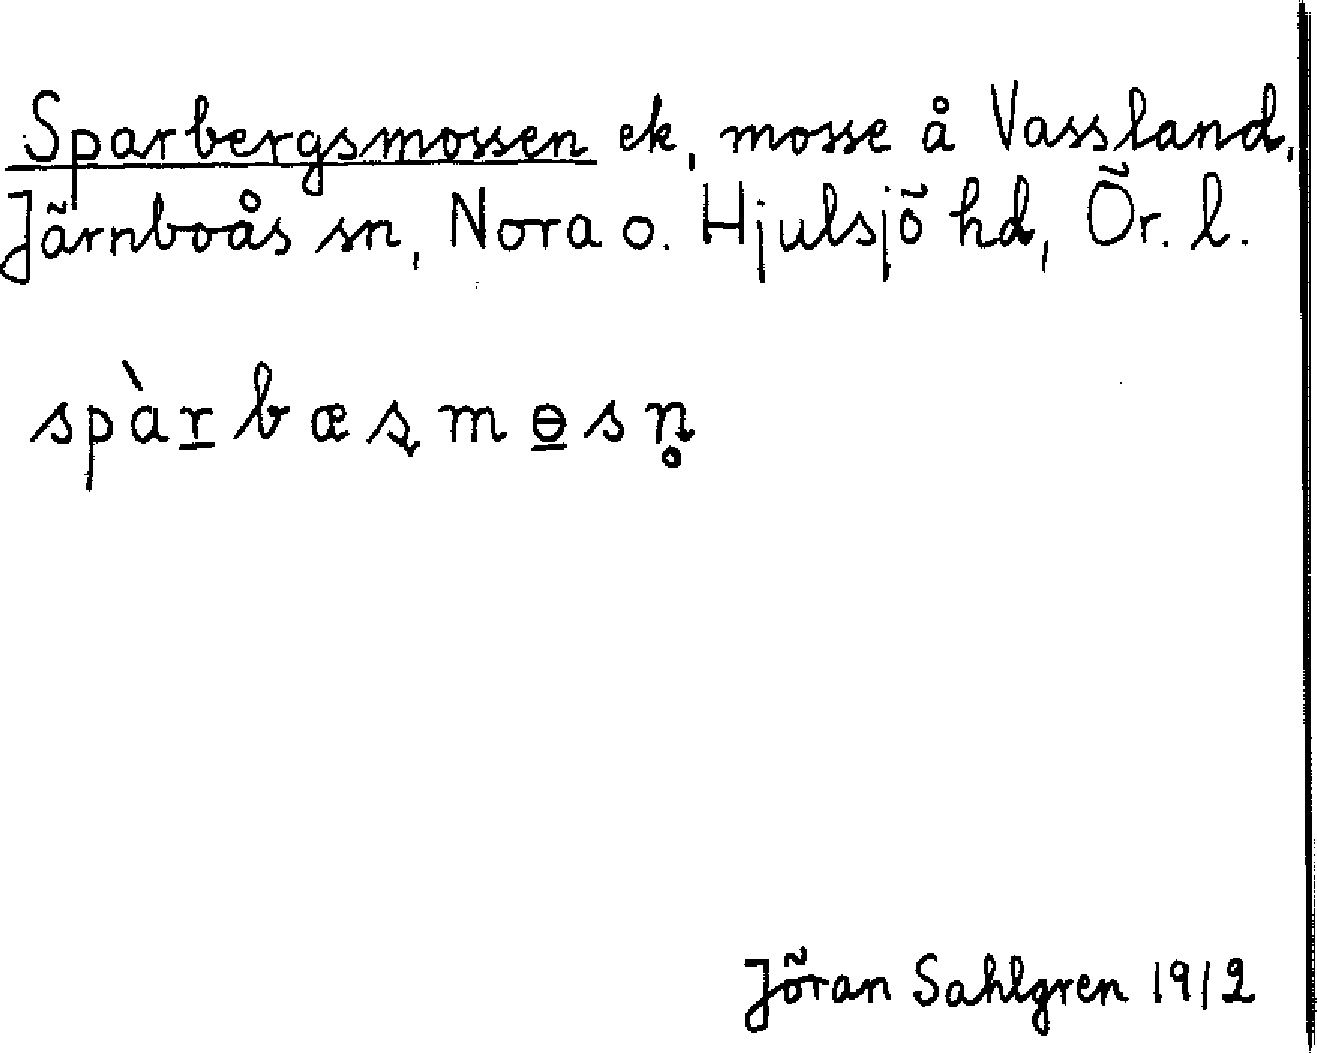 Sparbergsmossen ek, mosse å Vassland,
Järnboås sn, Nora o. Hjulsjö hd, Ör. l.
spàr̲bæs̨mɵ̲sn̥
Jöran Sahlgren 1912